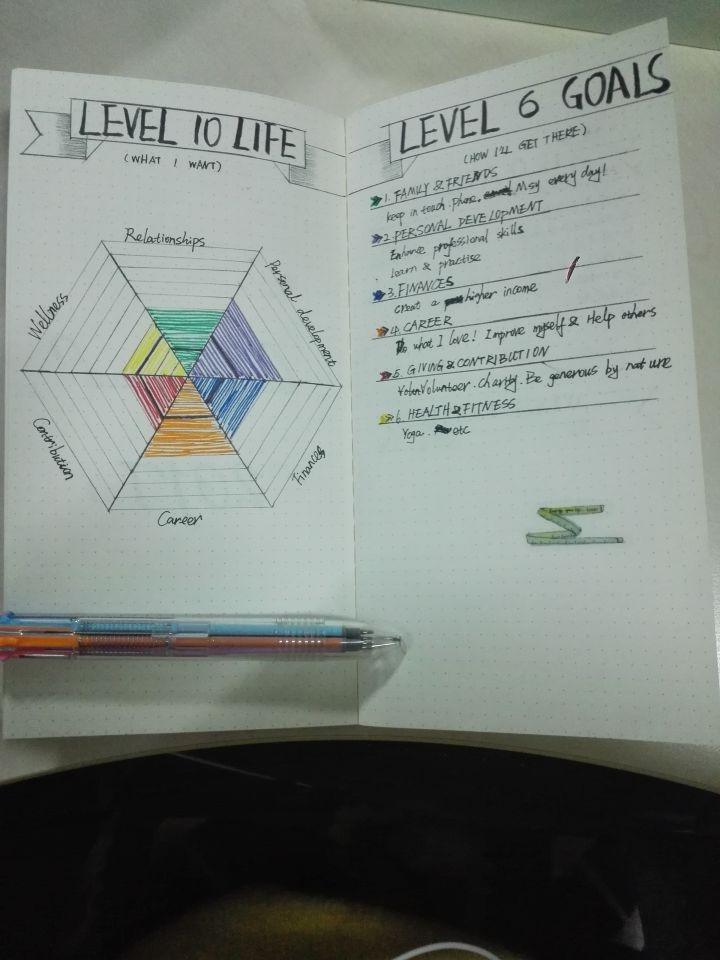 LEVEL 10 LIFE
(WHAT I WANT)
Relationships
Personal development
Wellness
Contribution
Finances
Career
LEVEL 6 GOALS
(HOW I'LL GET THERE)
1. FAMILY & FRIENDS
keep in touch. phone. Msy every day!
2. PERSONAL DEVELOPMENT
Enhance professional skills
Learn & practise
3. FINANCES
Creat a higher income
4. CAREER
Do what I love! Improve myself & Help others
5. GIVING & CONTRIBUTION
Volun Volunteer. charity. Be generous by nature
6. HEALTH & FITNESS
Yoga. etc